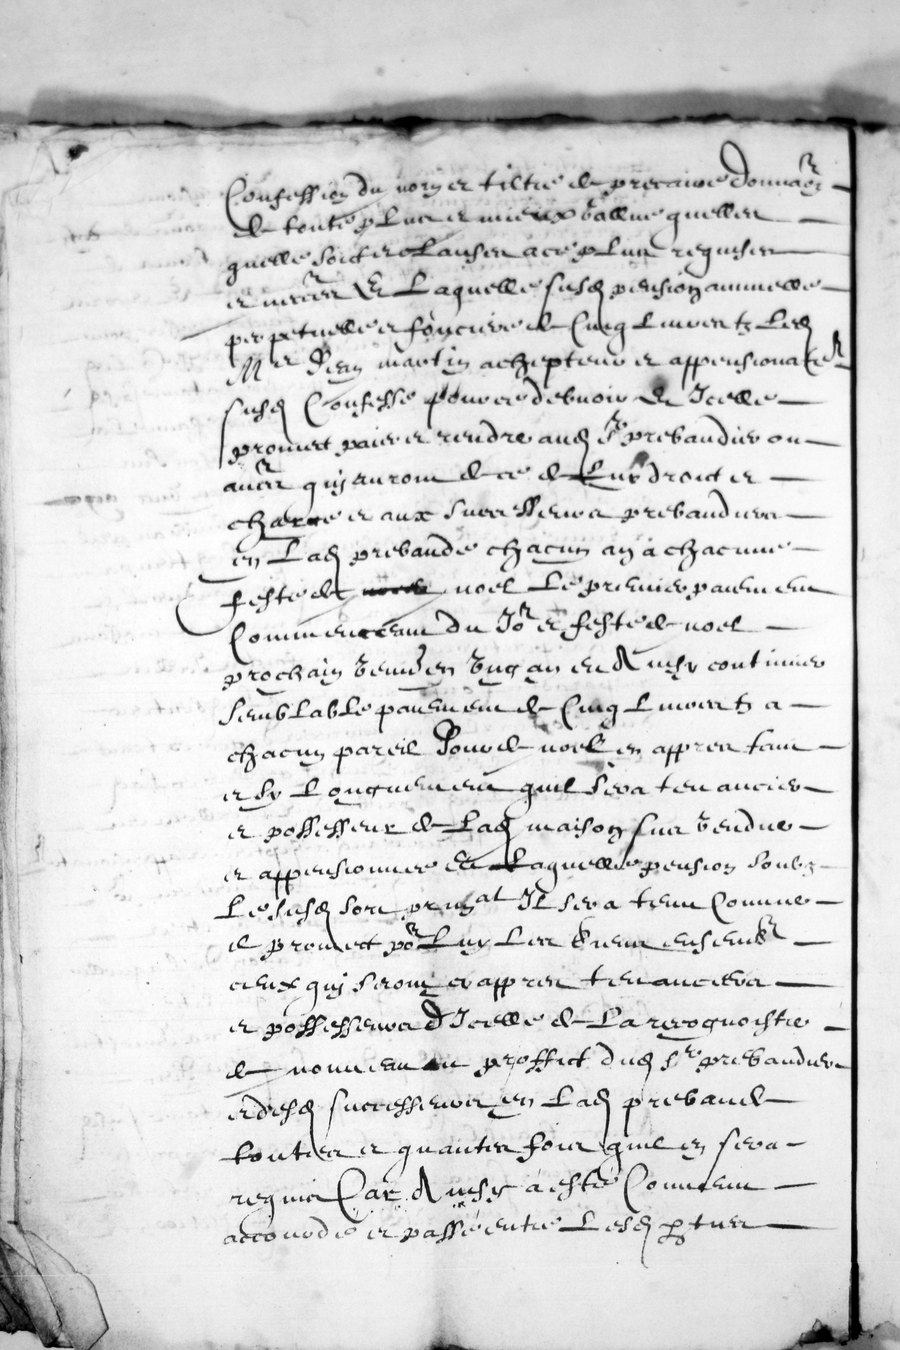 Confession du vray et tiltre de precaire donnaon
de toute plus et mieux vallue quelles
quelle soict et clauses ace plus requises
et necrres & Laquelle susd pension annuelle
perpetuelle et fonciere de Cinq Livres tz Led
Mre Jean martin achepteur et appensionare
susd Confesse pouvre debvoir & Icelle
promect paier et rendre aud sr prebandier ou
aucrs quj auront de ce de Luy droict et
charge et aux successeurs prebandiers
en Lad prebande chacun an a chacune
feste de noel Le premier paiement
Commenceant du Jor et feste de noel
prochain venant en ung an et Ainsy continuer
semblable paiement de Cinq Livres tz a
chacun pareil Jour de noel en appres tant
et sy Longuement quil sera tenancier
et possesseur de Lad maison sus vendue
et appensionnee & Laquelle pension soubz
Le susd sort prinal Il sera tenu Comme
il promect por Luy Les siens ensemble
ceux quj seront cy appres tenanciers
et possesseurs d Icelle de La recognoistre
de nouveau au proffict dud sr prebandier
et desd successeurs en Lad prebande
touttes et quantes fois quil en sera
requis Car Ainsy a esté Convenu
accordé et passé entre Lesd partyes